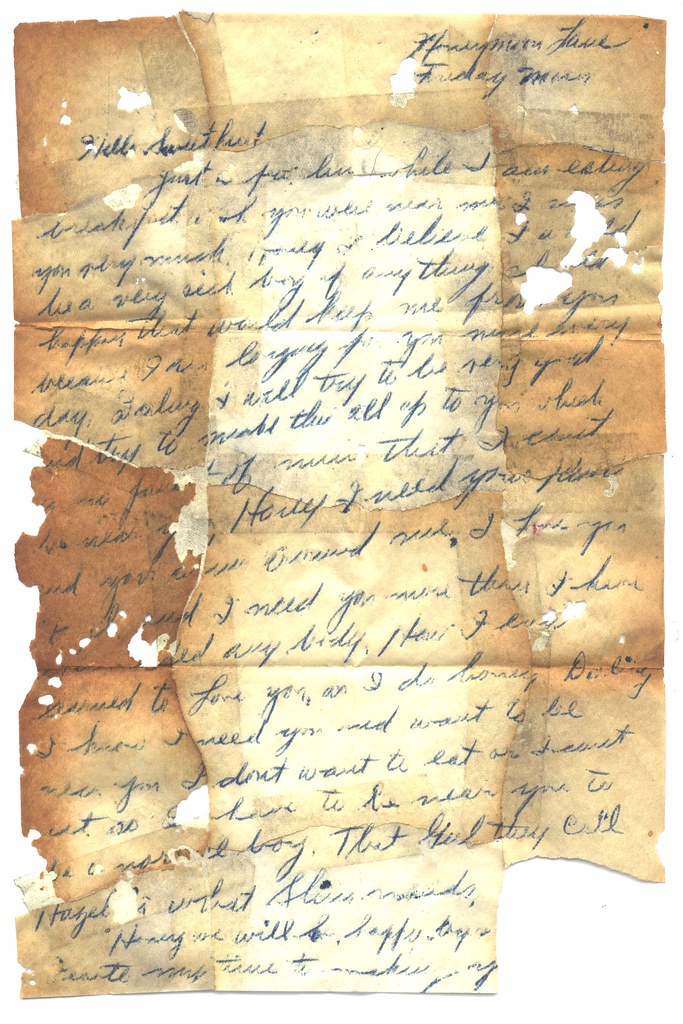 Honeymoon Lane
Friday Morn
Hello Sweethart
Just a few lines while I am eating
breakfast wish you were near me I miss
you very much. Honey I believe I would
be a very sick boy if anything should
happen that would keep me from you
because I am longing for you more every
day. Darling I will try to be very good
and try to make this all up to you which
of mine that I cant
be near you. Honey I need your
and your around me, I love you
and I need you more than I have
any body. How I ever
learned to love you, as I do honey Darling
I know I need you and want to be
near you I dont want to eat or I cant
eat so I have to be near you to
be a normal boy. That Girl they call
Hazel is what Slim needs,
Honey we will be happy
my time to making